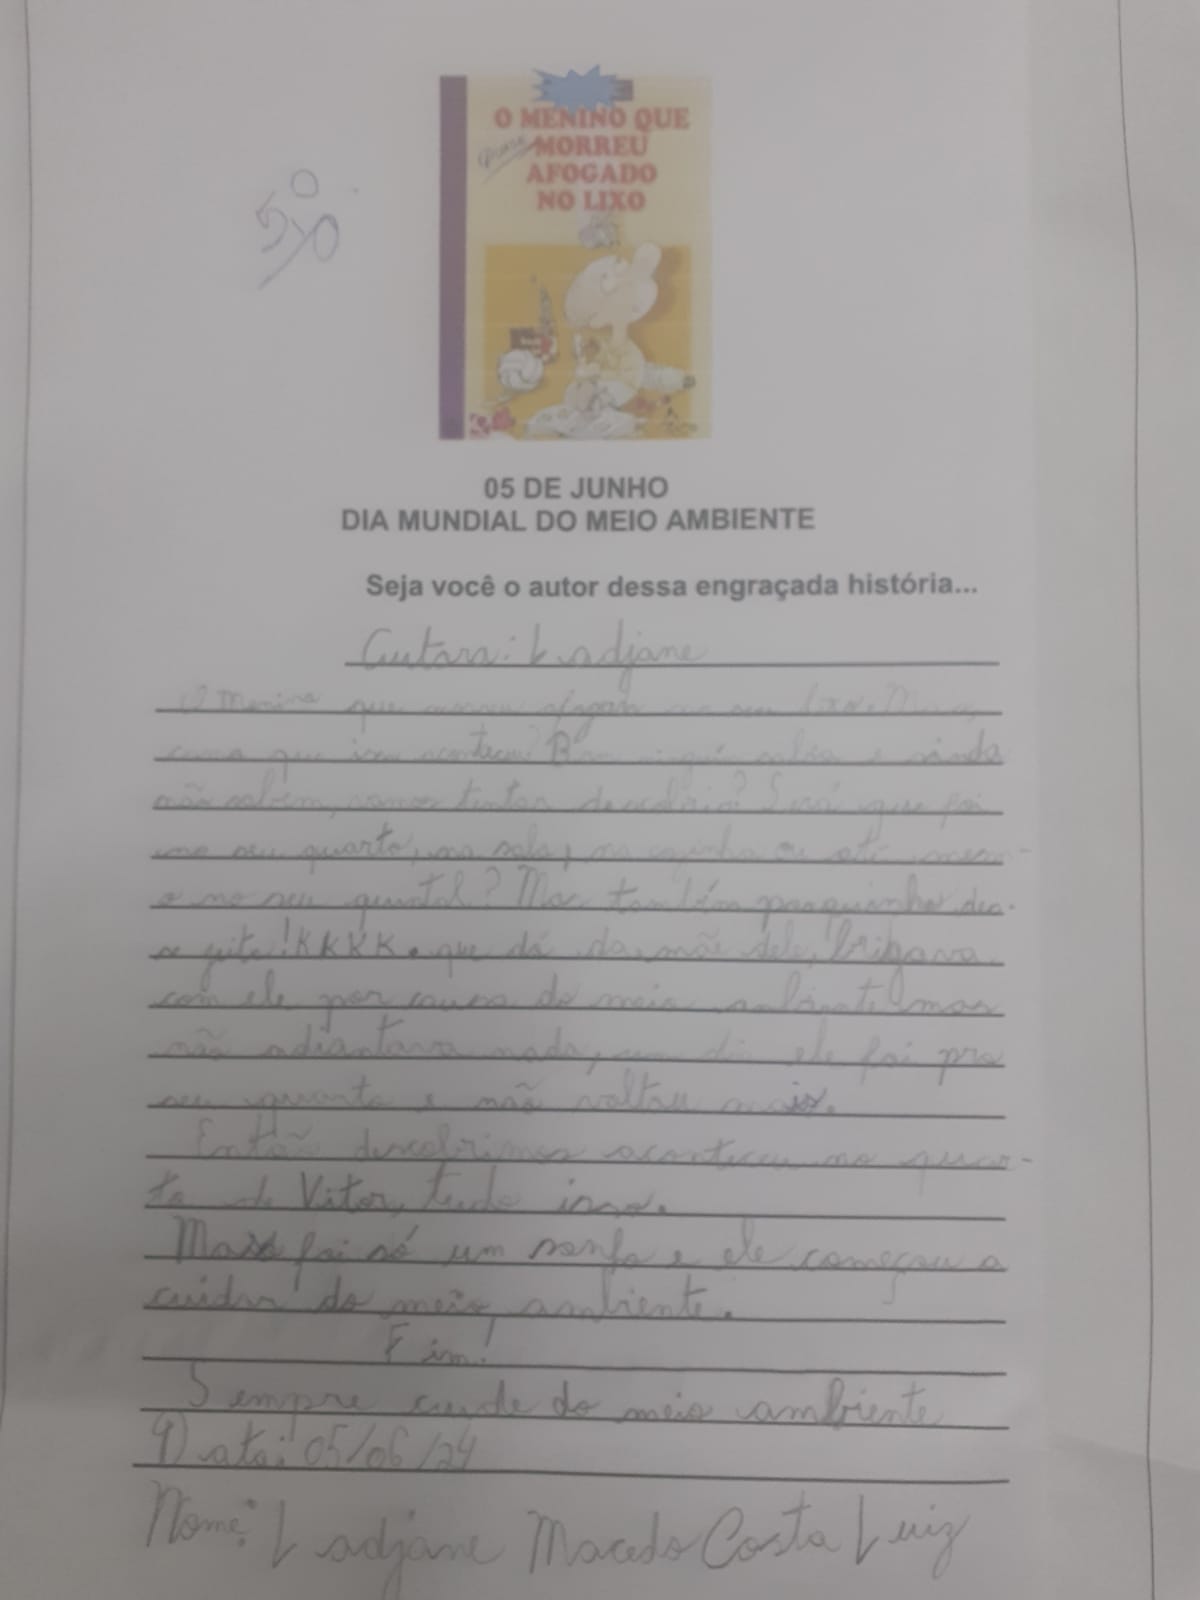 O MENINO QUE
quase MORREU
AFOGADO
NO LIXO
05 DE JUNHO
DIA MUNDIAL DO MEIO AMBIENTE
Seja você o autor dessa engraçada história...
Autora: Ladjane
O Menino que morreu afogado no seu lixo. Mas,
como que isso aconteceu? Bom e ainda
não sabem, vamos tentar descobrir? Será que foi
no seu quarto, na sala, na cozinha ou até mesm-
o no seu quintal? Mas também porquinho des-
se jeito! KKKK. que dó da mãe dele, brigava
com ele por causa do meio ambiente mas
não adiantava nada, um dia ele foi pro
seu quarto e não voltou mais.
Então descobrimos aconteceu no quar-
to de Vitor, tudo isso.
Mas foi só um sonho e ele começou a
cuidar do meio ambiente.
Fim!
Sempre cuide do meio ambiente
Data: 05/06/24
Nome: Ladjane Macedo Costa Luiz